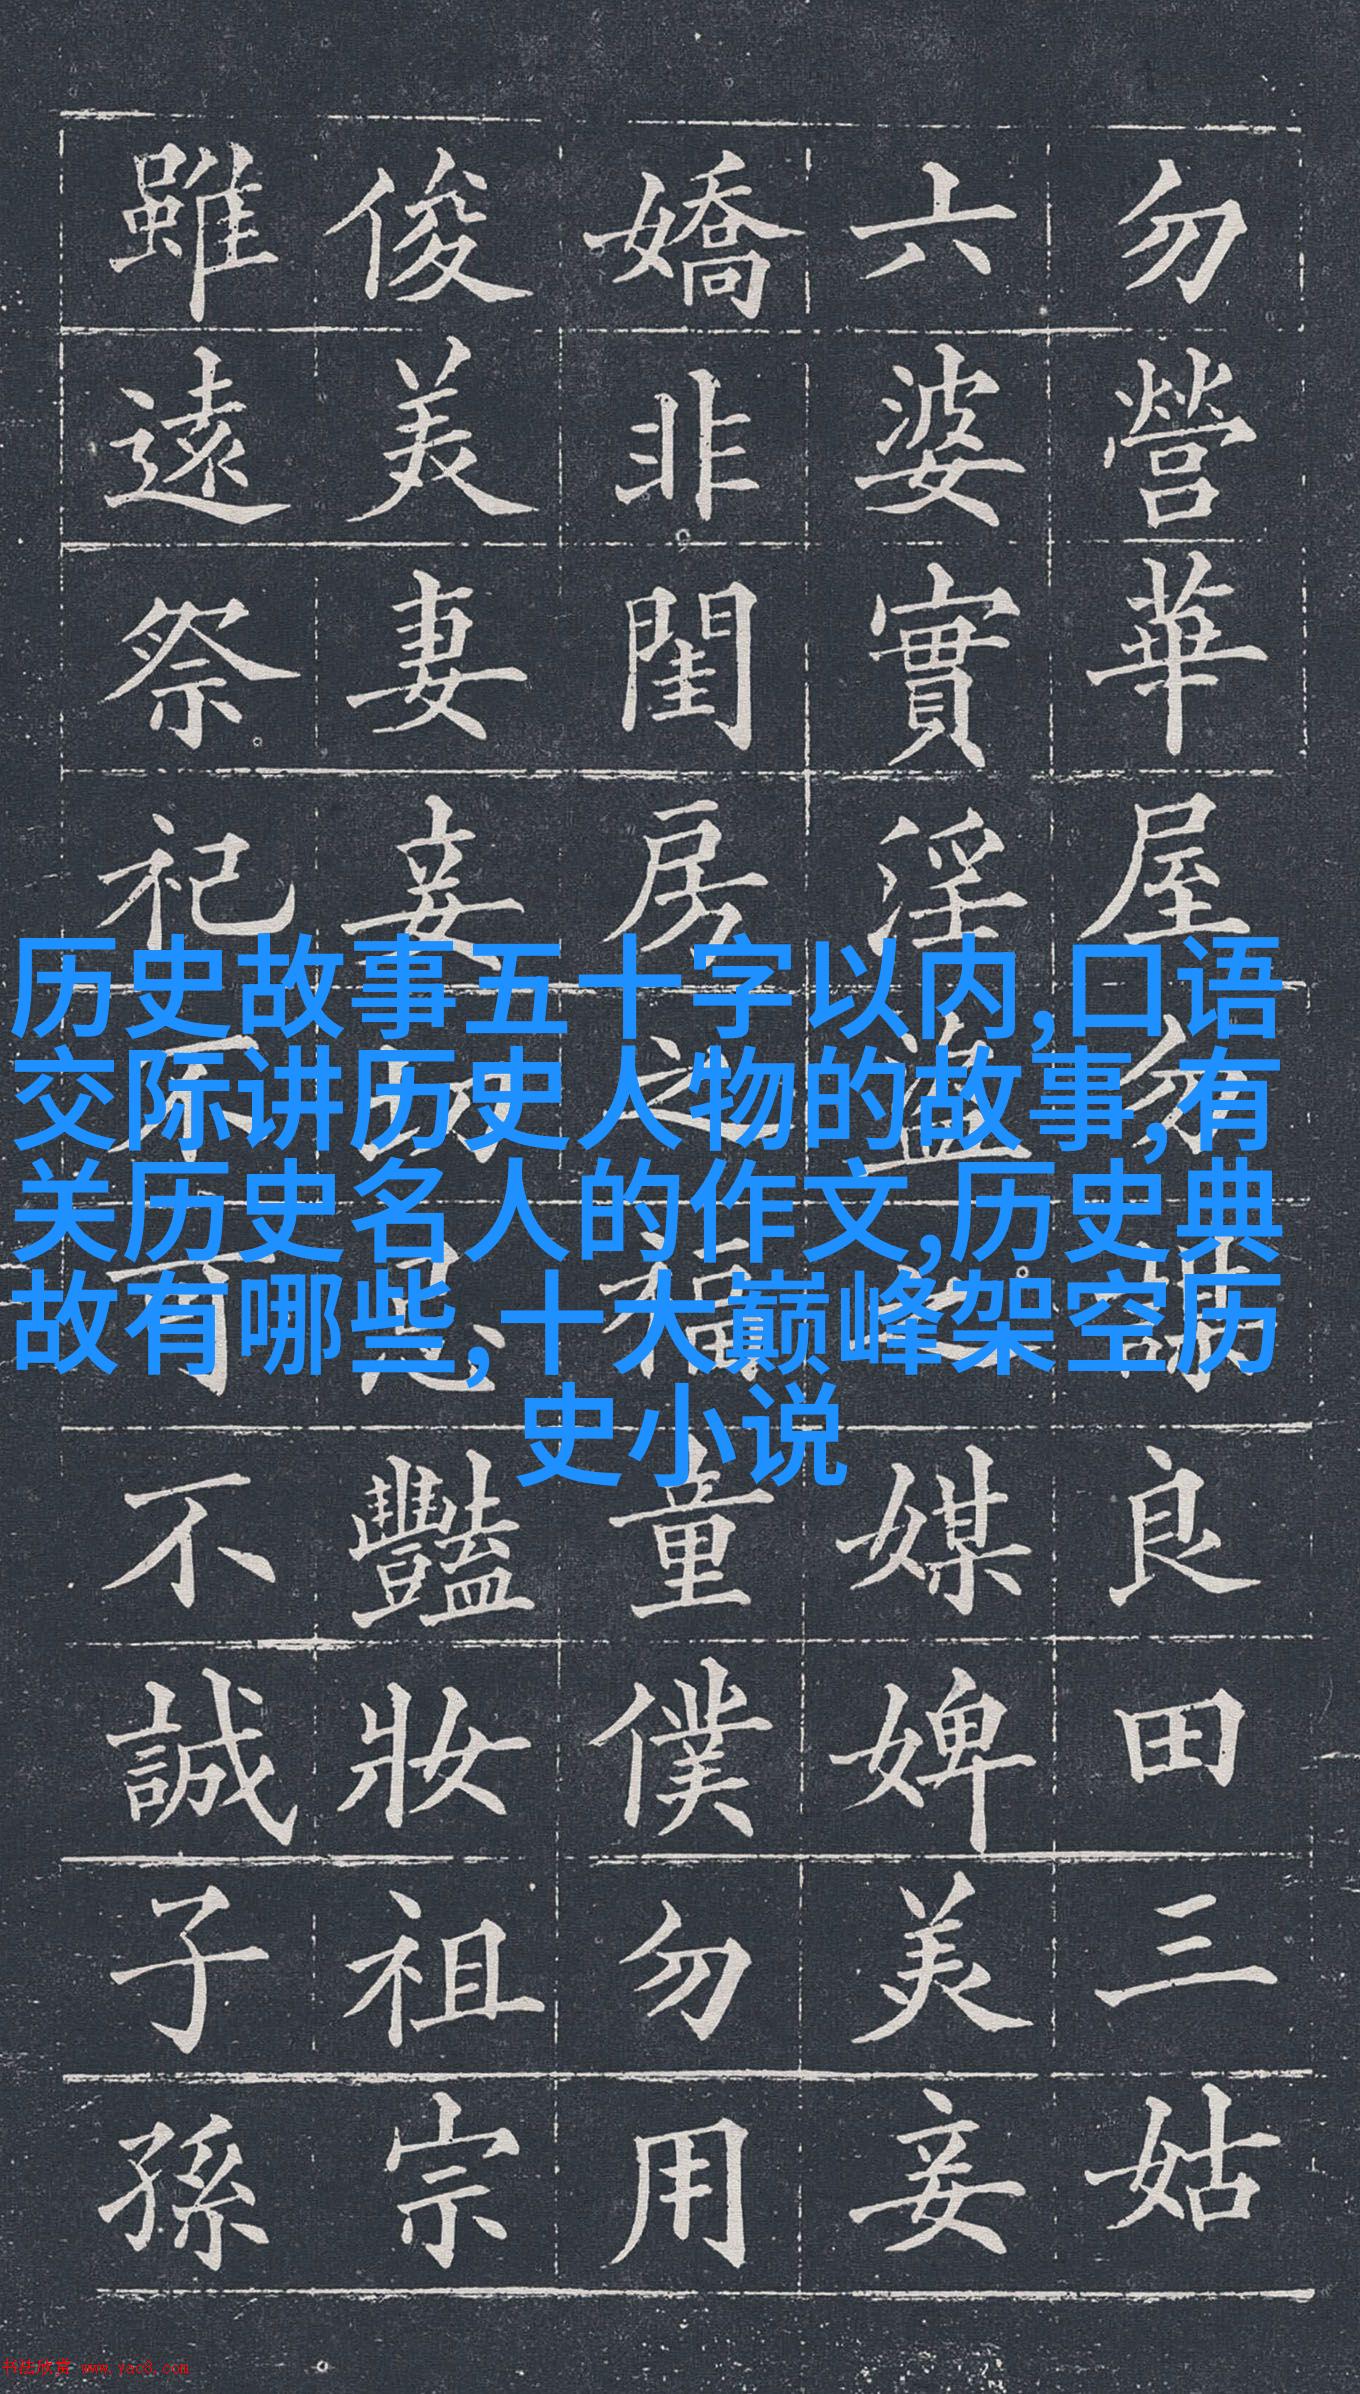 勿營華屋勿謀良田三姑
六婆實淫盜之媒婢美妾
嬌非閨房之福童僕勿用
俊美妻妾切忌豔妝祖宗
雖遠祭祀不可不誠子孫
历史故事五十字以内,口语
交际讲历史人物的故事,有
关历史名人的作文,历史典
故有哪些,十大巅峰架空历
史小说
书法欣赏 www.yac8.com